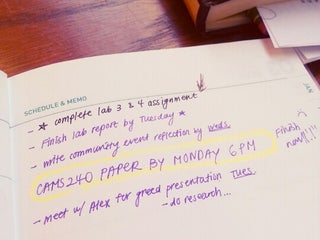 SCHEDULE & MEMO
JAN
- ★ complete lab 3 & 4 assignment
- Finish lab report by Tuesday ★
- write community event reflection by weds.
CAMS240 PAPER BY MONDAY 6PM
Finish now!!!
- Meet w/ Alex for greed presentation Tues.
- do research...